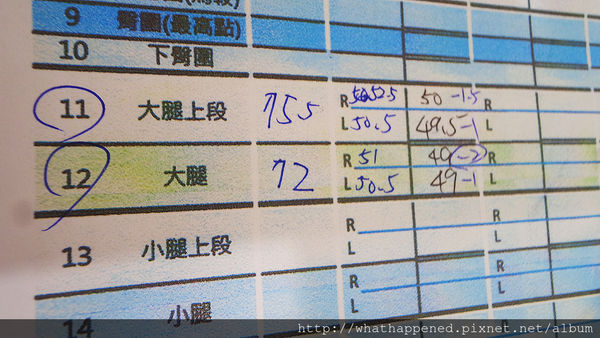 9 臀圍(最高點)
10 下臀圍
11 大腿上段 75.5 R 52.5 50 -1.5 R
L 50.5 49.5 -1 L
12 大腿 72 R 51 -2 R
L 50.5 49 -1 L
13 小腿上段 R R
L L
14 小腿 R R
L L
http://whathappened.pixnet.net/album